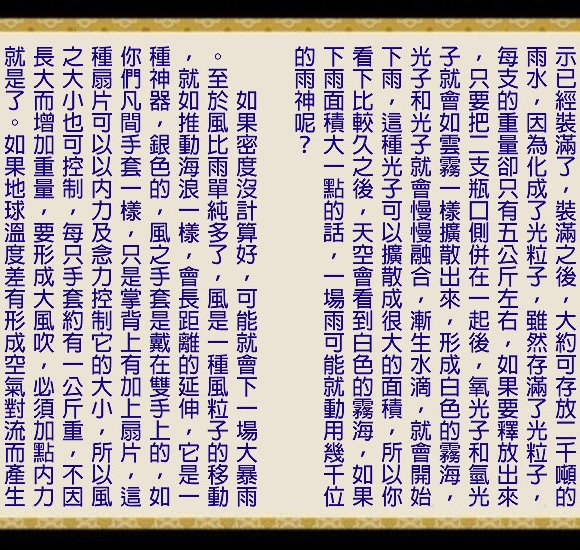 示已經裝滿了，裝滿之後，大約可存放二千噸的
雨水，因為化成了光粒子，雖然存滿了光粒子，
每支的重量卻只有五公斤左右，如果要釋放出來
，只要把二支瓶口側併在一起後，氧光子和氫光
子就會如雲霧一樣擴散出來，形成白色的霧海，
光子和光子就會慢慢融合，漸生水滴，就會開始
下雨，這種光子可以擴散成很大的面積，所以你
看下比較久之後，天空會看到白色的霧海，如果
下雨面積大一點的話，一場雨可能就動用幾千位
的雨神呢？
如果密度沒計算好，可能就會下一場大暴雨
。至於風比雨單純多了，風是一種風粒子的移動
，就如推動海浪一樣，會長距離的延伸，它是一
種神器，銀色的，風之手套是戴在雙手上的，如
你們凡間手套一樣，只是掌背上有加上扇片，這
種扇片可以以內力及念力控制它的大小，所以風
之大小也可控制，每只手套約有一公斤重，不因
長大而增加重量，要形成大風吹，必須加點內力
就是了。如果地球溫度差有形成空氣對流而產生